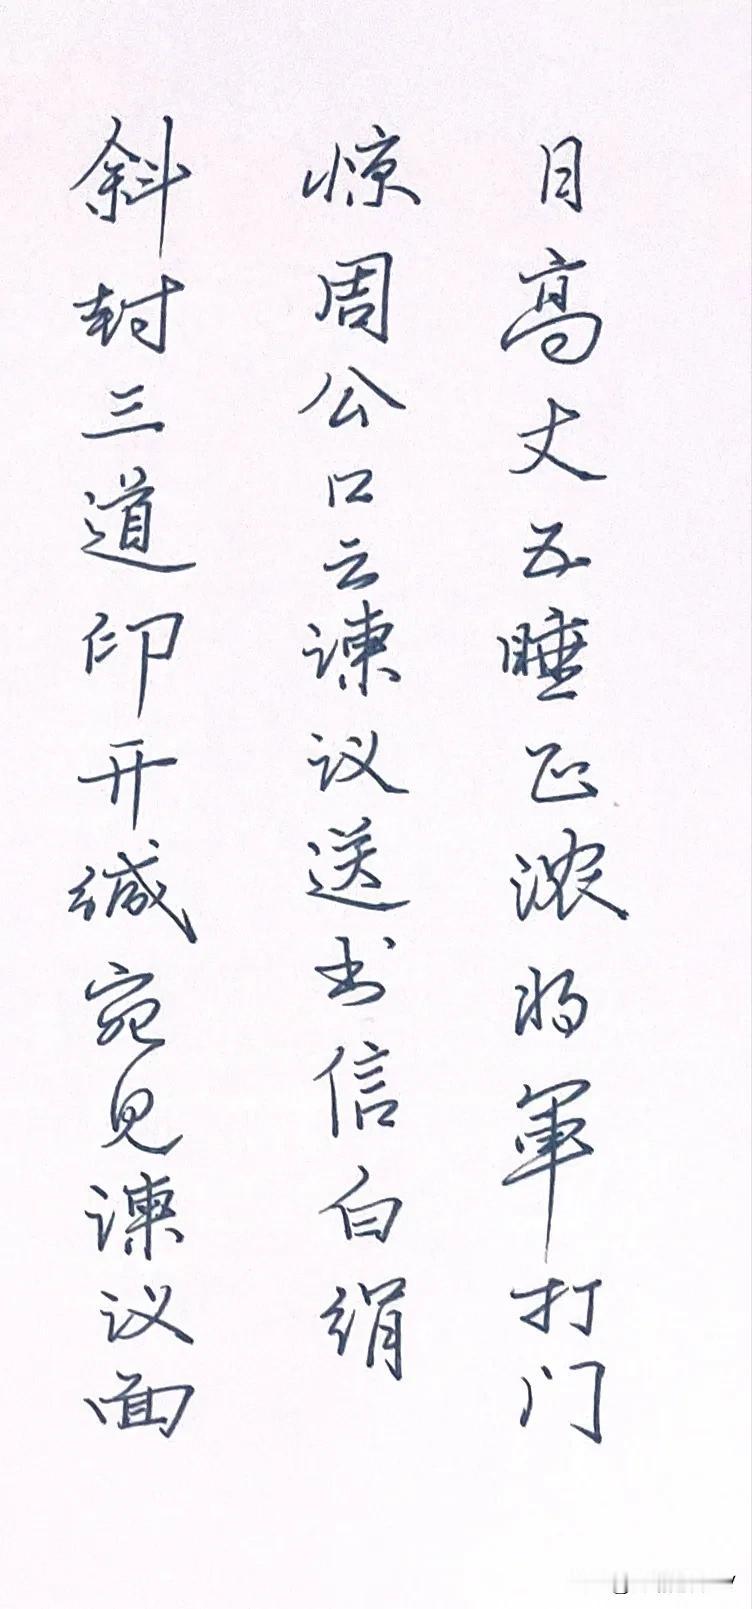 日高丈五睡正浓将軍打门
惊周公口云谏议送书信白绢
斜封三道印开缄宛见谏议面